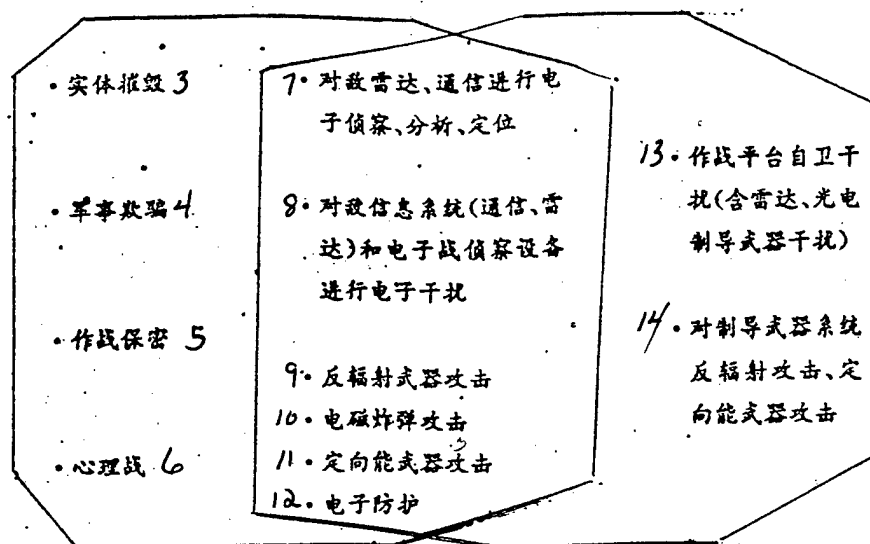 • 实体摧毁 3
• 军事欺骗 4
• 作战保密 5
• 心理战 6
7 • 对敌雷达、通信进行电
子侦察、分析、定位
8 • 对敌信息系统(通信、雷
达)和电子战侦察设备
进行电子干扰
9 • 反辐射武器攻击
10 • 电磁炸弹攻击
11 • 定向能武器攻击
12 • 电子防护
13 • 作战平台自卫干
扰(含雷达、光电
制导武器干扰)
14 • 对制导武器系统
反辐射攻击、定
向能武器攻击